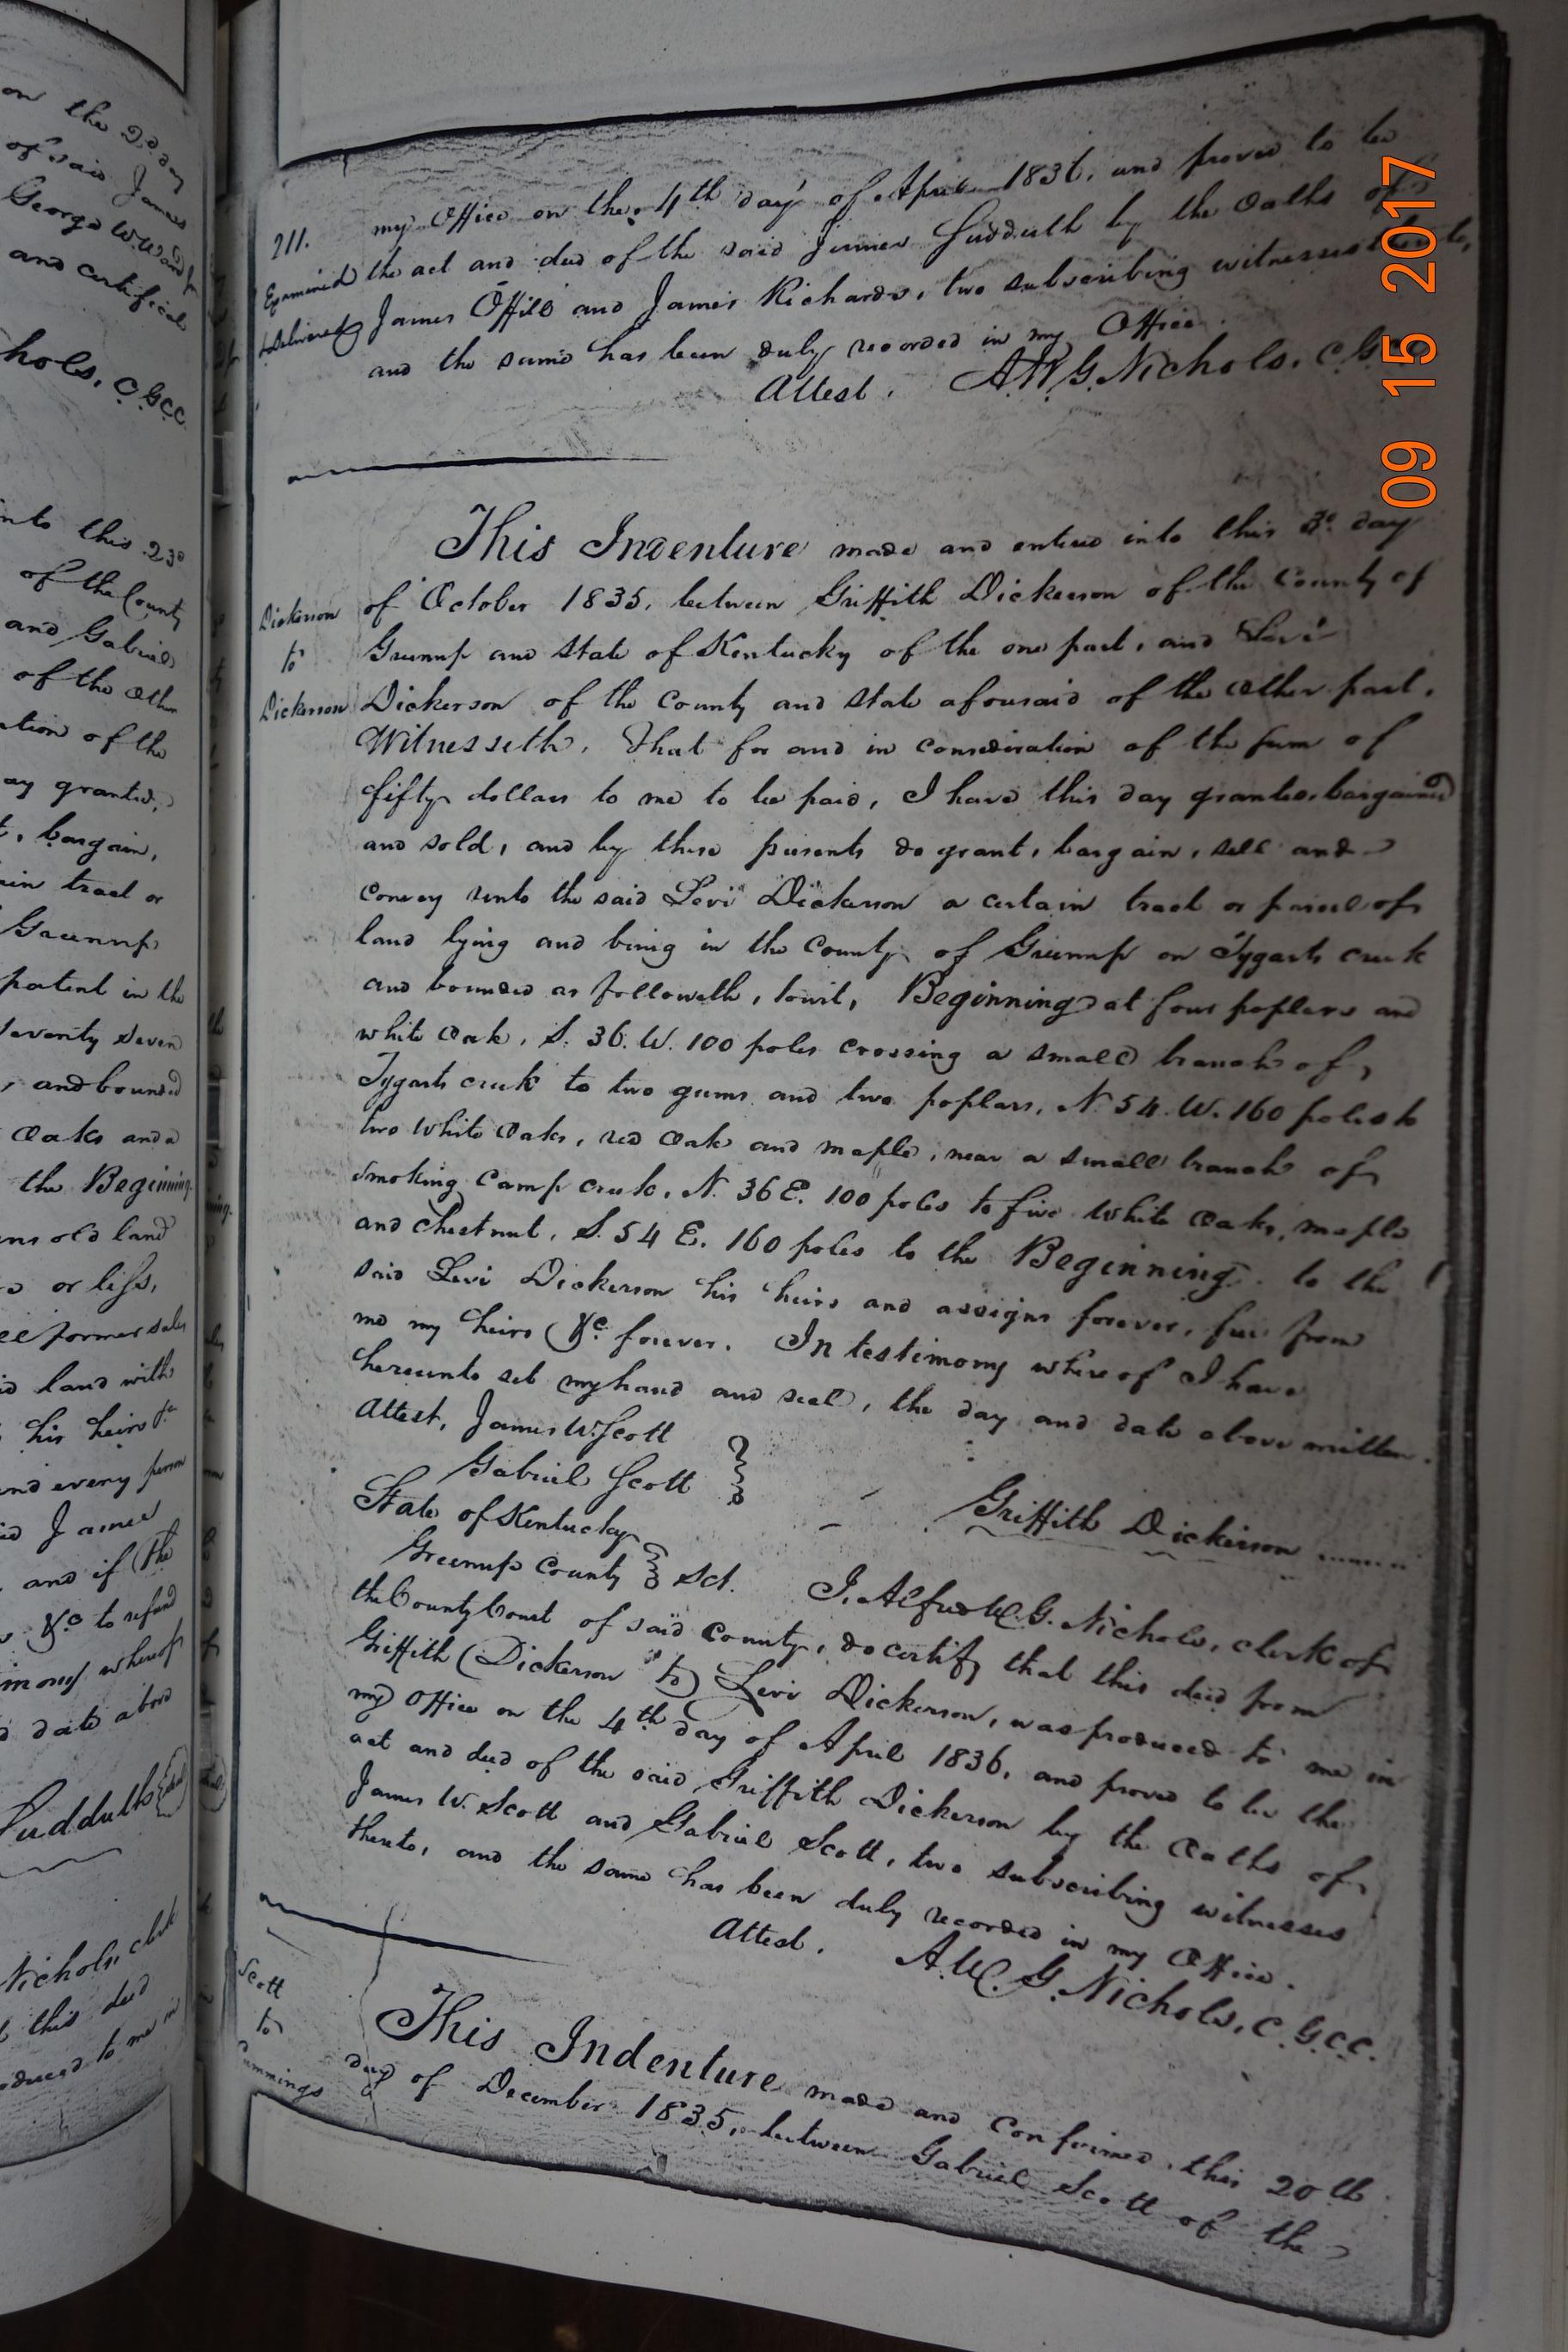 on the 22 day
of said James
George W. Ward
and certificate
hols, C.G.C.C.
nto this 23d
of the County
and Gabriel
of the Other
ation of the
ay granted,
t, bargain,
ain tract or
Greenup
patent in the
Seventy Seven
, and bounded
Oaks and a
the Beginning
ans old land
or less,
former sales
id land with
his heirs &c
and every person
id James
, and if the
&c to refund
imony whereof
d date above
Suddeth
Nichols, clerk
t this deed
oduced to me in
211. my Office on the 4th day of April 1836, and proved to be
Examined the act and deed of the said James Suddeth by the Oaths of
& delivered James Offill and James Richards, two subscribing witnesses thereto,
and the same has been duly recorded in my Office.
Attest. A.W.G. Nichols, C.G.
This Indenture made and entered into this 3d day
Dickerson of October 1835, between Griffith Dickerson of the County of
to Greenup and State of Kentucky of the one part, and Levi
Dickerson Dickerson of the County and State aforesaid of the Other part.
Witnesseth, That for and in consideration of the sum of
fifty dollars to me to be paid, I have this day granted, bargained
and sold, and by these presents do grant, bargain, sell and
convey unto the said Levi Dickerson a certain tract or parcel of
land lying and being in the County of Greenup on Tygarts creek
and bounded as followeth, towit, Beginning at four poplars and
white Oak, S. 36. W. 100 poles crossing a small branch of
Tygarts creek to two gums and two poplars, N. 54. W. 160 poles to
two White Oaks, red Oak and maple, near a small branch of
Smoking Camp creek, N. 36 E. 100 poles to five White Oaks, maple
and chestnut, S. 54 E. 160 poles to the Beginning. to the
said Levi Dickerson his heirs and assigns forever, free from
me my heirs &c forever. In testimony whereof I have
hereunto set my hand and seal, the day and date above written.
Attest, James W. Scott
Gabriel Scott
Griffith Dickerson
State of Kentucky
Greenup County Sct. I, Alfred W. G. Nichols, clerk of
the County Court of said County, do certify that this deed from
Griffith Dickerson to Levi Dickerson, was produced to me in
my Office on the 4th day of April 1836, and proved to be the
act and deed of the said Griffith Dickerson by the Oaths of
James W. Scott and Gabriel Scott, two subscribing witnesses
thereto, and the same has been duly recorded in my Office.
Attest. A.W.G. Nichols, C.G.C.C.
Scott
to This Indenture made and confirmed this 20th
Cummings day of December 1835, between Gabriel Scott of the
09 15 2017